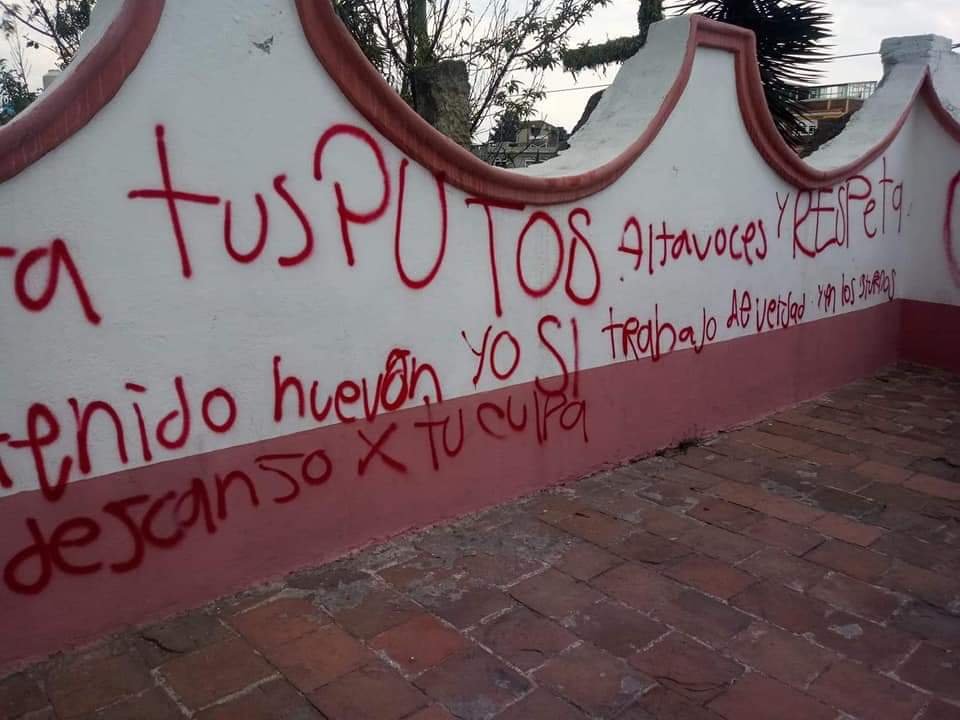 ra t tus PUTOS Altavoces Y RESPeta.
tenido huevón yo SI trabajo de verdad y en los
descanso x tu culpa